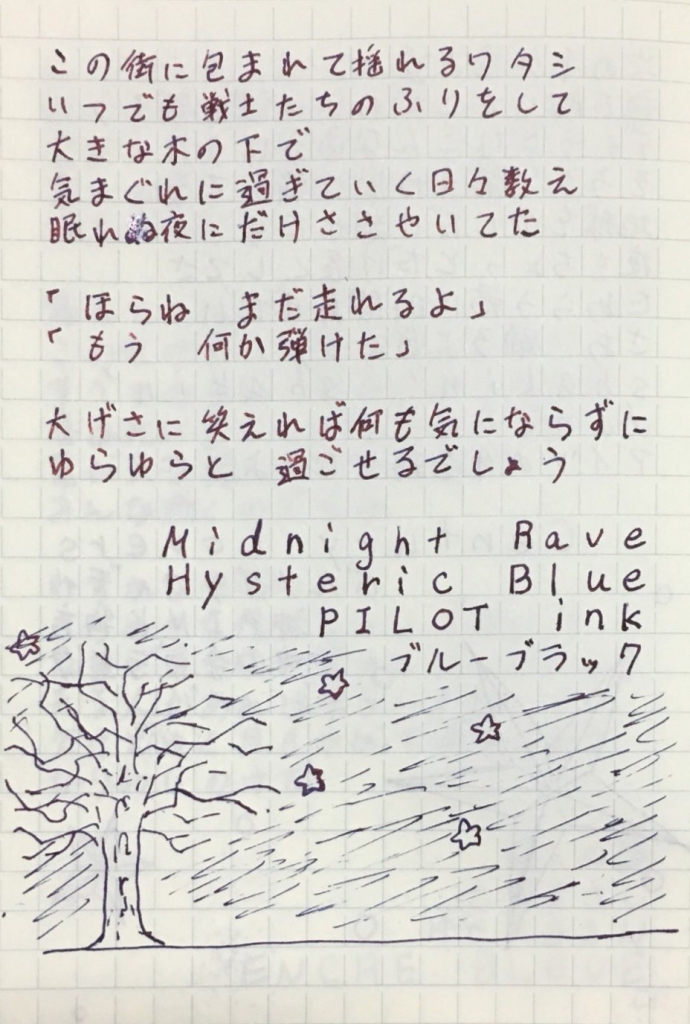 この街に包まれて揺れるワタシ
いつでも戦士たちのふりをして
大きな木の下で
気まぐれに過ぎていく日々数え
眠れぬ夜にだけささやいてた
「ほらね　まだ走れるよ」
「もう　何か弾けた」
大げさに笑えれば何も気にならずに
ゆらゆらと　過ごせるでしょう
Midnight Rave
Hysteric Blue
PILOT ink
ブルーブラック